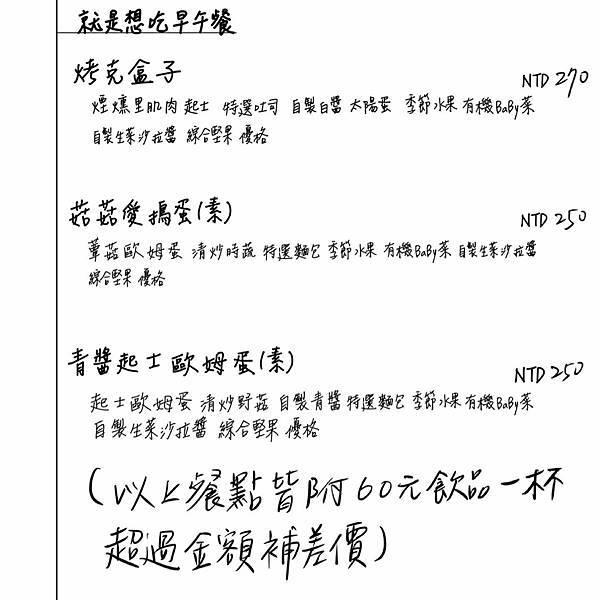 就是想吃早午餐
烤克盒子
NTD 270
煙燻里肌肉 起士 特選吐司 自製白醬 太陽蛋 季節水果 有機BaBy菜
自製生菜沙拉醬 綜合堅果 優格
菇菇愛搗蛋(素)
NTD 250
蕈菇歐姆蛋 清炒時蔬 特選麵包 季節水果 有機BaBy菜 自製生菜沙拉醬
綜合堅果 優格
青醬起士歐姆蛋(素)
NTD 250
起士歐姆蛋 清炒野菇 自製青醬 特選麵包 季節水果 有機BaBy菜
自製生菜沙拉醬 綜合堅果 優格
(以上餐點皆附60元飲品一杯
超過金額補差價)